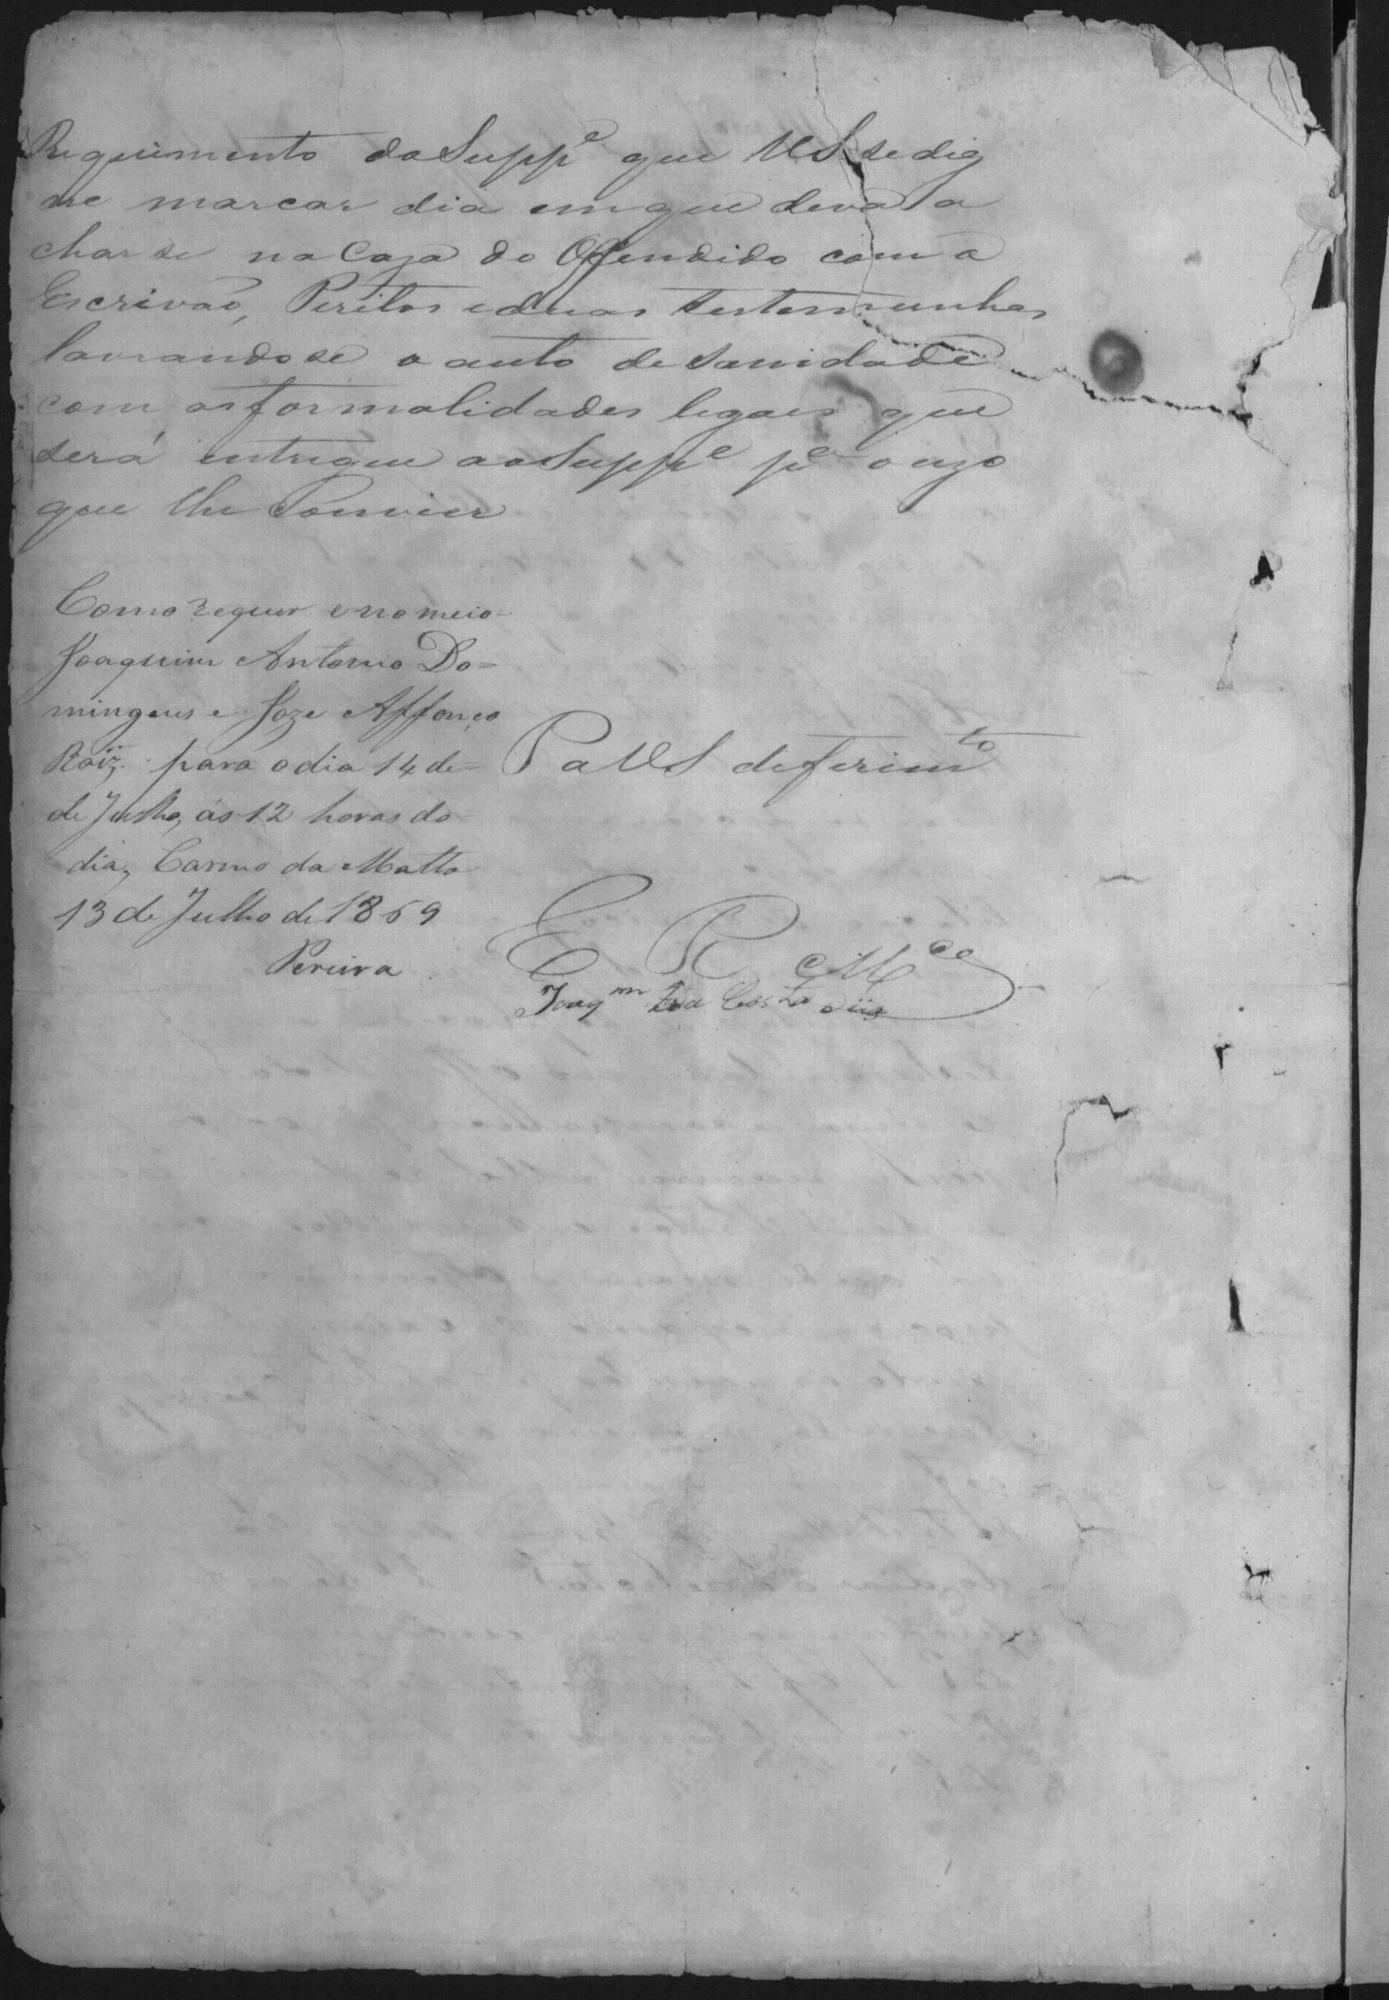 Requerimento do Supp.e que V.S. se dig
ne marcar dia em que deva a
char se na Caza do Offendido com o
Escrivão, Peritos e duas testemunhas
lavrando se o auto de Sanidade
com as formalidades legaes que
será entregue ao Supp.e p.a o uzo
que lhe Convier
Como requer e nomeio
Joaquim Antonio Do-
mingues e Joze Affonço
Roiz. para o dia 14 de-
de Julho, ás 12 horas do
dia, Carmo da Matta
13 de Julho de 1869
Pereira
P a V.S. deferim.to
E R M.ce
Joaq.m da Costa